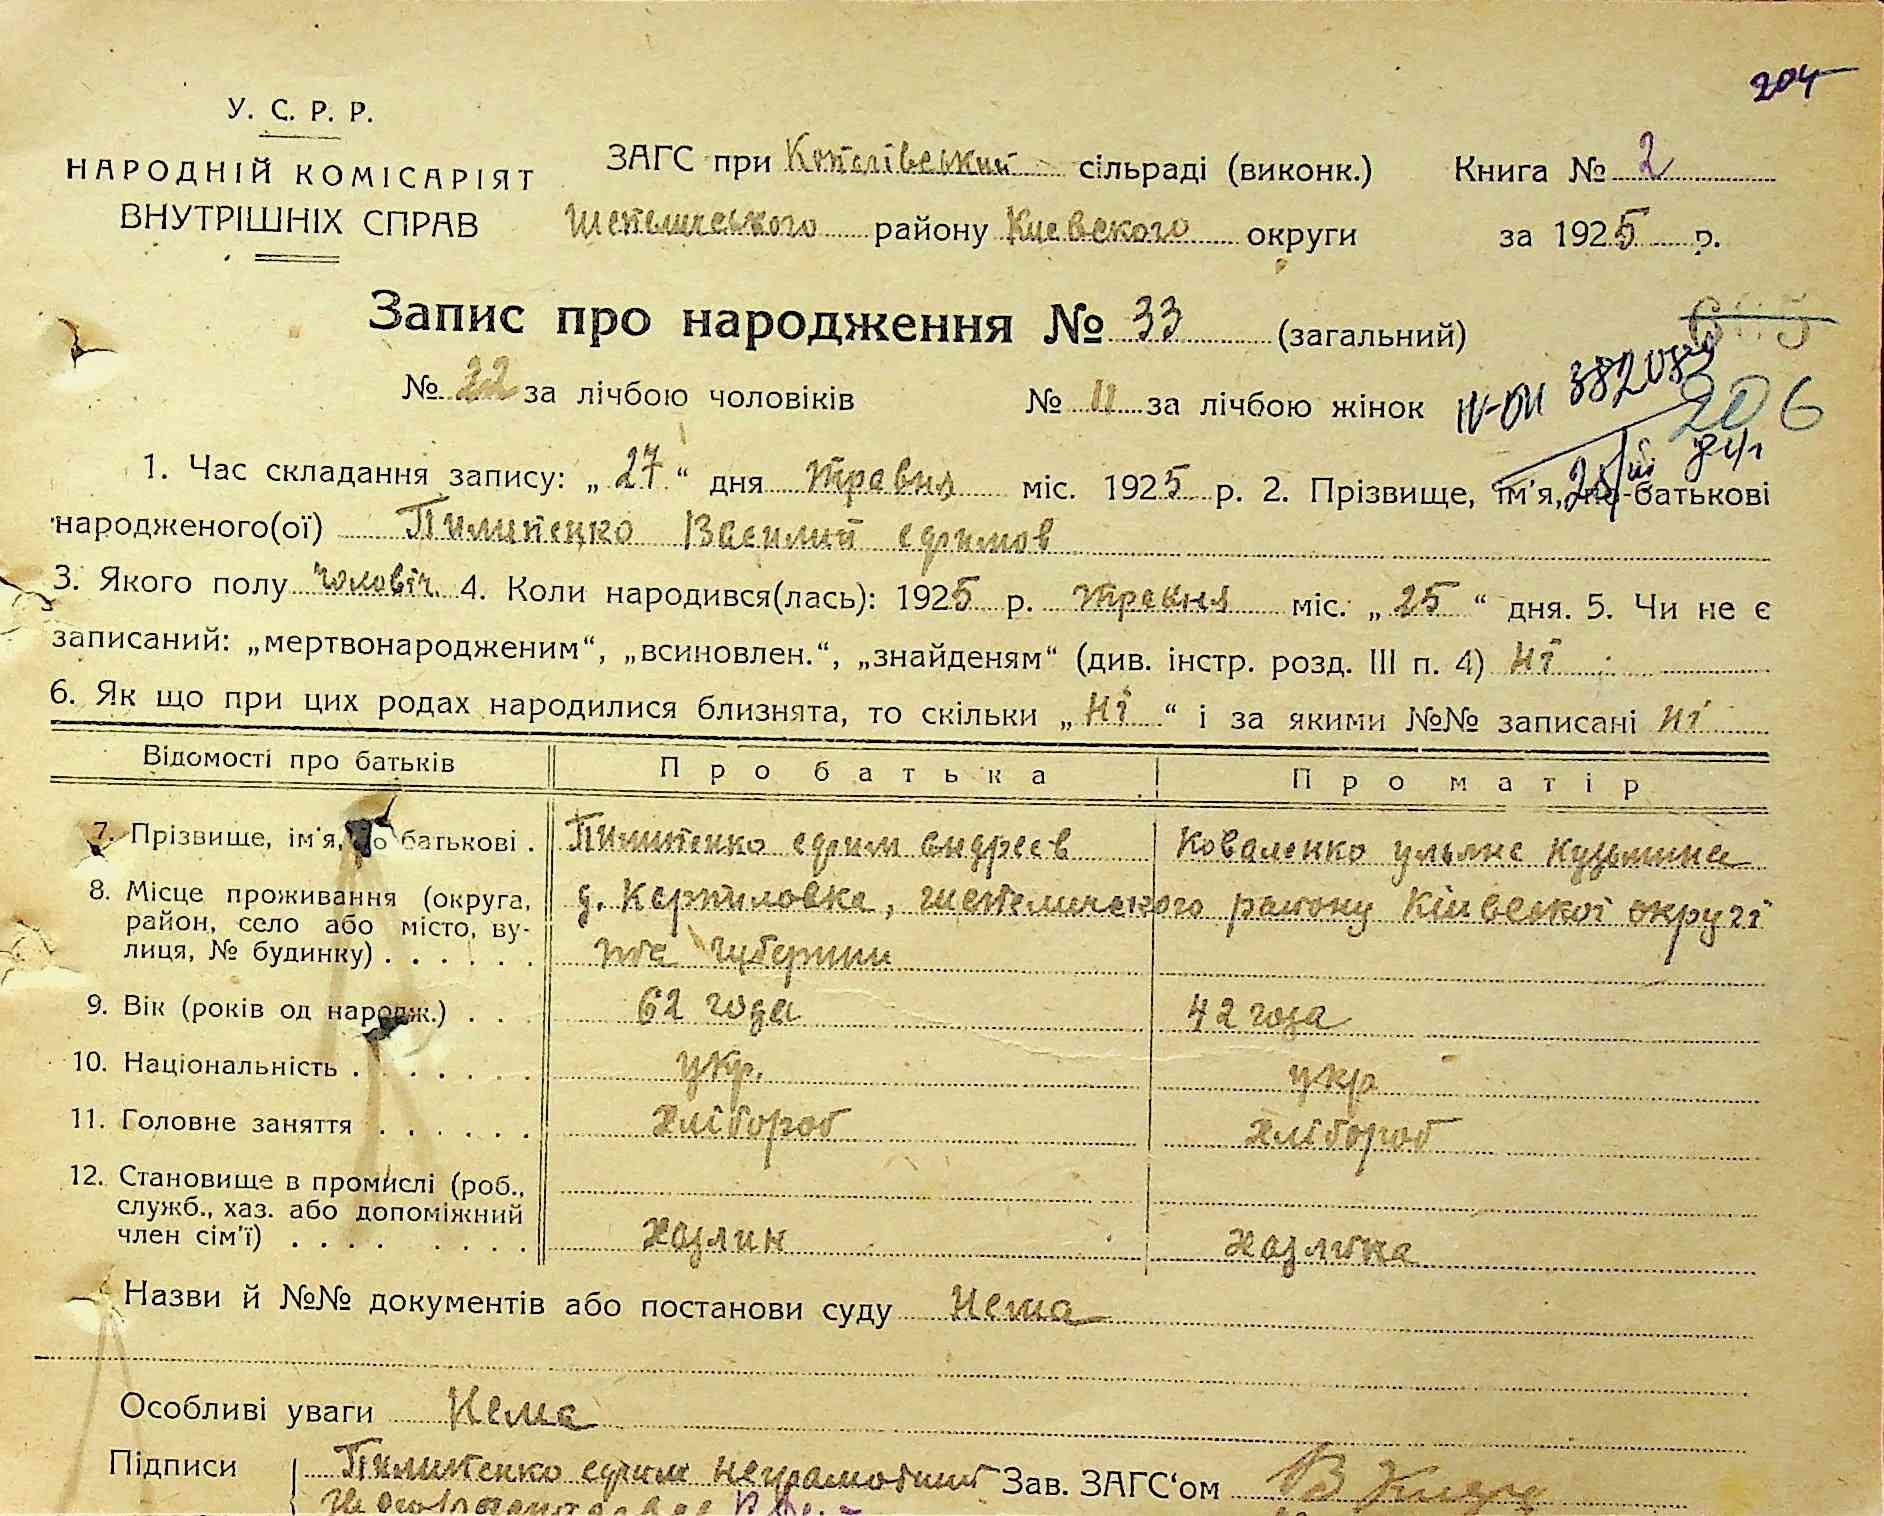 204
У. С. Р. Р.
НАРОДНІЙ КОМІСАРІЯТ
ВНУТРІШНІХ СПРАВ
ЗАГС при Копачівський сільраді (виконк.) Книга № 2
Шепелического району Киевского округи за 1925 р.
Запис про народження № 33 (загальний)
№ 22 за лічбою чоловіків № 11 за лічбою жінок
206
1. Час складання запису: „27“ дня травня міс. 1925 р. 2. Прізвище, ім'я, по-батькові
народженого(ої) Пилипенко Василий ефимов
3. Якого полу чоловіч. 4. Коли народився(лась): 1925 р. травня міс. „25“ дня. 5. Чи не є
записаний: „мертвонародженим“, „всиновлен.“, „знайденям“ (див. інстр. розд. III п. 4) ні
6. Як що при цих родах народилися близнята, то скільки „ні“ і за якими №№ записані ні
Відомості про батьків Про батька Про матір
7. Прізвище, ім'я, по батькові . Пилипенко ефим андреев Коваленко ульяна Кузьмина
8. Місце проживання (округа,
район, село або місто, ву-
лиця, № будинку) . . . . . .
д. Карпиловка, шепелического району Київскої округі
губернии
9. Вік (років од народж.) . . . 62 года 42 года
10. Національність . . . . . . . укр. укр
11. Головне заняття . . . . . . хлібороб хлібороб
12. Становище в промислі (роб.,
служб., хаз. або допоміжний
член сім'ї) . . . . . . . . хазяин хазяйка
Назви й №№ документів або постанови суду Нема
Особливі уваги Нема
Підписи Пилипенко ефим неграмотний Зав. ЗАГС'ом